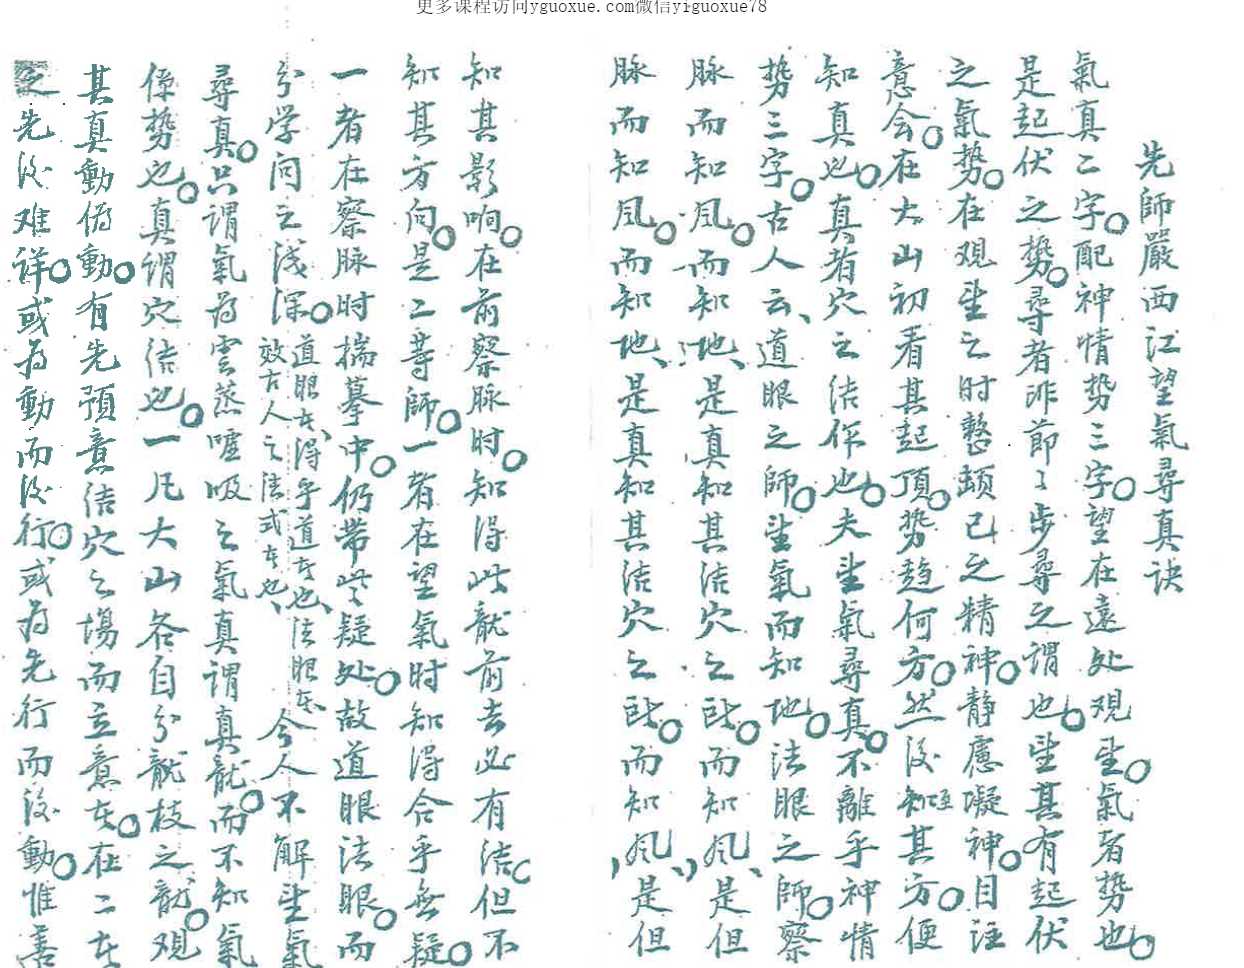 更多课程访问yguoxue.com微信yiguoxue78
先師嚴西江望氣尋真诀
氣真二字○配神情势三字○望在遠处观望○氣者势也○
是起伏之势○尋者非節〻步尋之謂也○望其有起伏
之氣势○在观望之时整頓己之精神○静慮凝神○目注
意会○在大山初看其起頂○势趋何方○然後知其方○便
知真也○真者穴之结作也○夫望氣尋真○不離乎神情
势三字○古人云、道眼之師○望氣而知地○法眼之師○察
脉而知风○而知地、是真知其结穴之所○而知风、是但
脉而知风○而知地、是真知其结穴之所○而知风、是但
知其影响○在前察脉时○知得此龍前去必有结○但不
知其方向○是二等師○一者在望氣时知得合乎無疑○
一者在察脉时揣摹中○仍带些疑处○故道眼法眼○而
分学问之浅深○道眼在、得乎道在也、法眼在
效古人之法式在也、
今人不解望氣
尋真○只谓氣为雲蒸嘘吸之氣真谓真龍○而不知氣
係势也○真谓穴结也○一凡大山各自分龍枝之龍○观
其真動偽動○有先預意结穴之場而立意在○在二在
之先後难详○或为動而後行○或为先行而後動○惟善